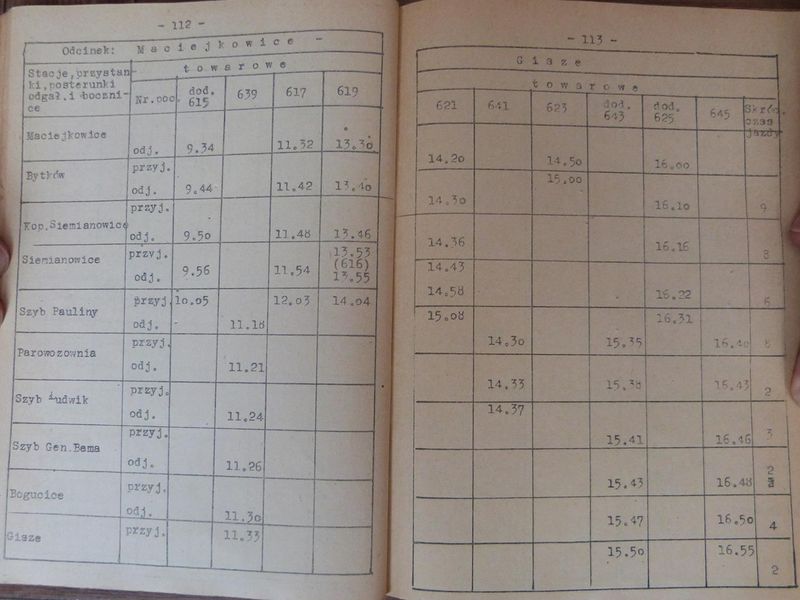 - 112 -
Odcinek: Maciejkowice -
Stacje, przystan-
ki, posterunki
odgał. i boczni-
ce
towarowe
Nr. poc. dod. 615 639 617 619
Maciejkowice
odj. 9.34 11.32 13.30
Bytków przyj.
odj. 9.44 11.42 13.40
Kop. Siemianowice przyj.
odj. 9.50 11.48 13.46
Siemianowice przyj. 13.53
(616)
odj. 9.56 11.54 13.55
Szyb Pauliny przyj. 10.05 12.03 14.04
odj. - 11.18
Parowozownia przyj.
odj. 11.21
Szyb Ludwik przyj.
odj. 11.24
Szyb Gen. Bema przyj.
odj. 11.26
Bogucice przyj.
odj. 11.30
Gisze przyj. 11.33
- 113 -
Gisze
towarowe
621 641 623 dod. 643 dod. 625 645 Skróc. czas jazdy
14.20 14.50 16.00
15.00
14.30 16.10 9
14.36 16.16 3
14.43
14.58 16.22 6
15.08 16.31
14.30 15.35 16.40 8
14.33 15.38 16.43 2
14.37
15.41 16.46 3
2
15.43 16.48
15.47 16.50 4
15.50 16.55
2